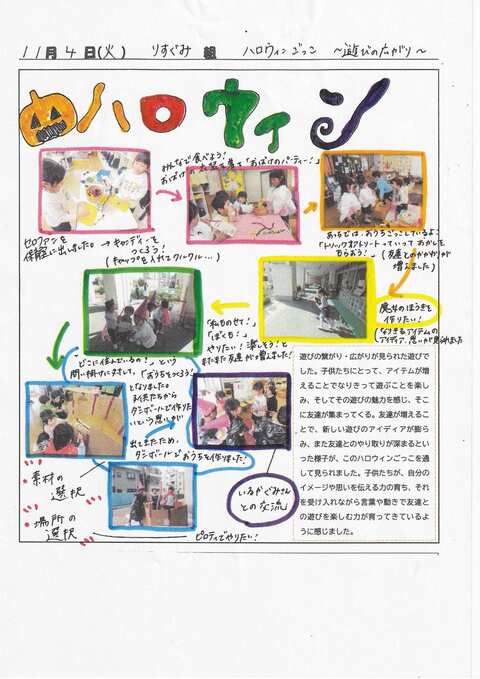 11月4日(火) りすぐみ 組 ハロウィンごっこ ～遊びの広がり～
ハロウィン
みんなで食べよう!
「おばけのパーティー!」
セロファンを
保育室に出しました。
→キャンディーを
つくろう!
(キャップを入れてクルクル…)
あちらでは、おうちごっこしているよ!
「トリックオアトリートっていっておかしを
もらおう!」(友達とのかかわりが
増えました)
魔女のほうきを
作りたい!
(なりきるアイテムの
アイディア、思いが見られました
「私ものせて!」
「ぼくも!」
やりたい!楽しそう!と
またまた友達が増えました!
「どこに住んでいるの?」という
問い掛けに対して、「おうちをつくろう!」
となりました。
子どもたちから
ダンボールで作りたい
という思いが
出ましたため、
ダンボールでおうちを作りました!
・素材の
選択
・場所の
選択
いるかぐみさん
との交流
ピロティでやりたい!
遊びの繋がり・広がりが見られた遊びで
した。子供たちにとって、アイテムが増
えることでなりきって遊ぶことを楽し
み、そしてその遊びの魅力を感じ、そこ
に友達が集まってくる。友達が増えるこ
とで、新しい遊びのアイディアが膨ら
み、また友達とのやり取りが深まるとい
った様子が、このハロウィンごっこを通
して見られました。子供たちが、自分の
イメージや思いを伝える力の育ち、それ
を受け入れながら言葉や動きで友達と
の遊びを楽しむ力が育ってきているよ
うに感じました。